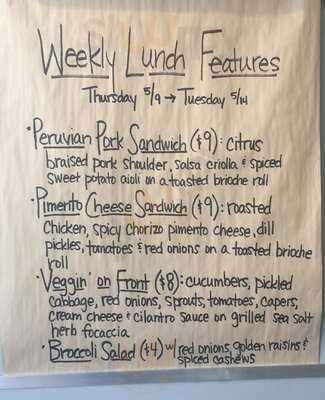 Weekly Lunch Features
Thursday 5/9 → Tuesday 5/14
· Peruvian Pork Sandwich ($9): citrus
braised pork shoulder, salsa criolla & spiced
sweet potato aioli on a toasted brioche roll
· Pimento Cheese Sandwich ($9): roasted
Chicken, spicy chorizo pimento cheese, dill
pickles, tomatoes & red onions on a toasted brioche
roll
· Veggin' on Front ($8): cucumbers, pickled
cabbage, red onions, sprouts, tomatoes, capers,
cream cheese & cilantro sauce on grilled sea salt
herb focaccia
· Broccoli Salad ($4) w/ red onions, golden raisins &
spiced cashews